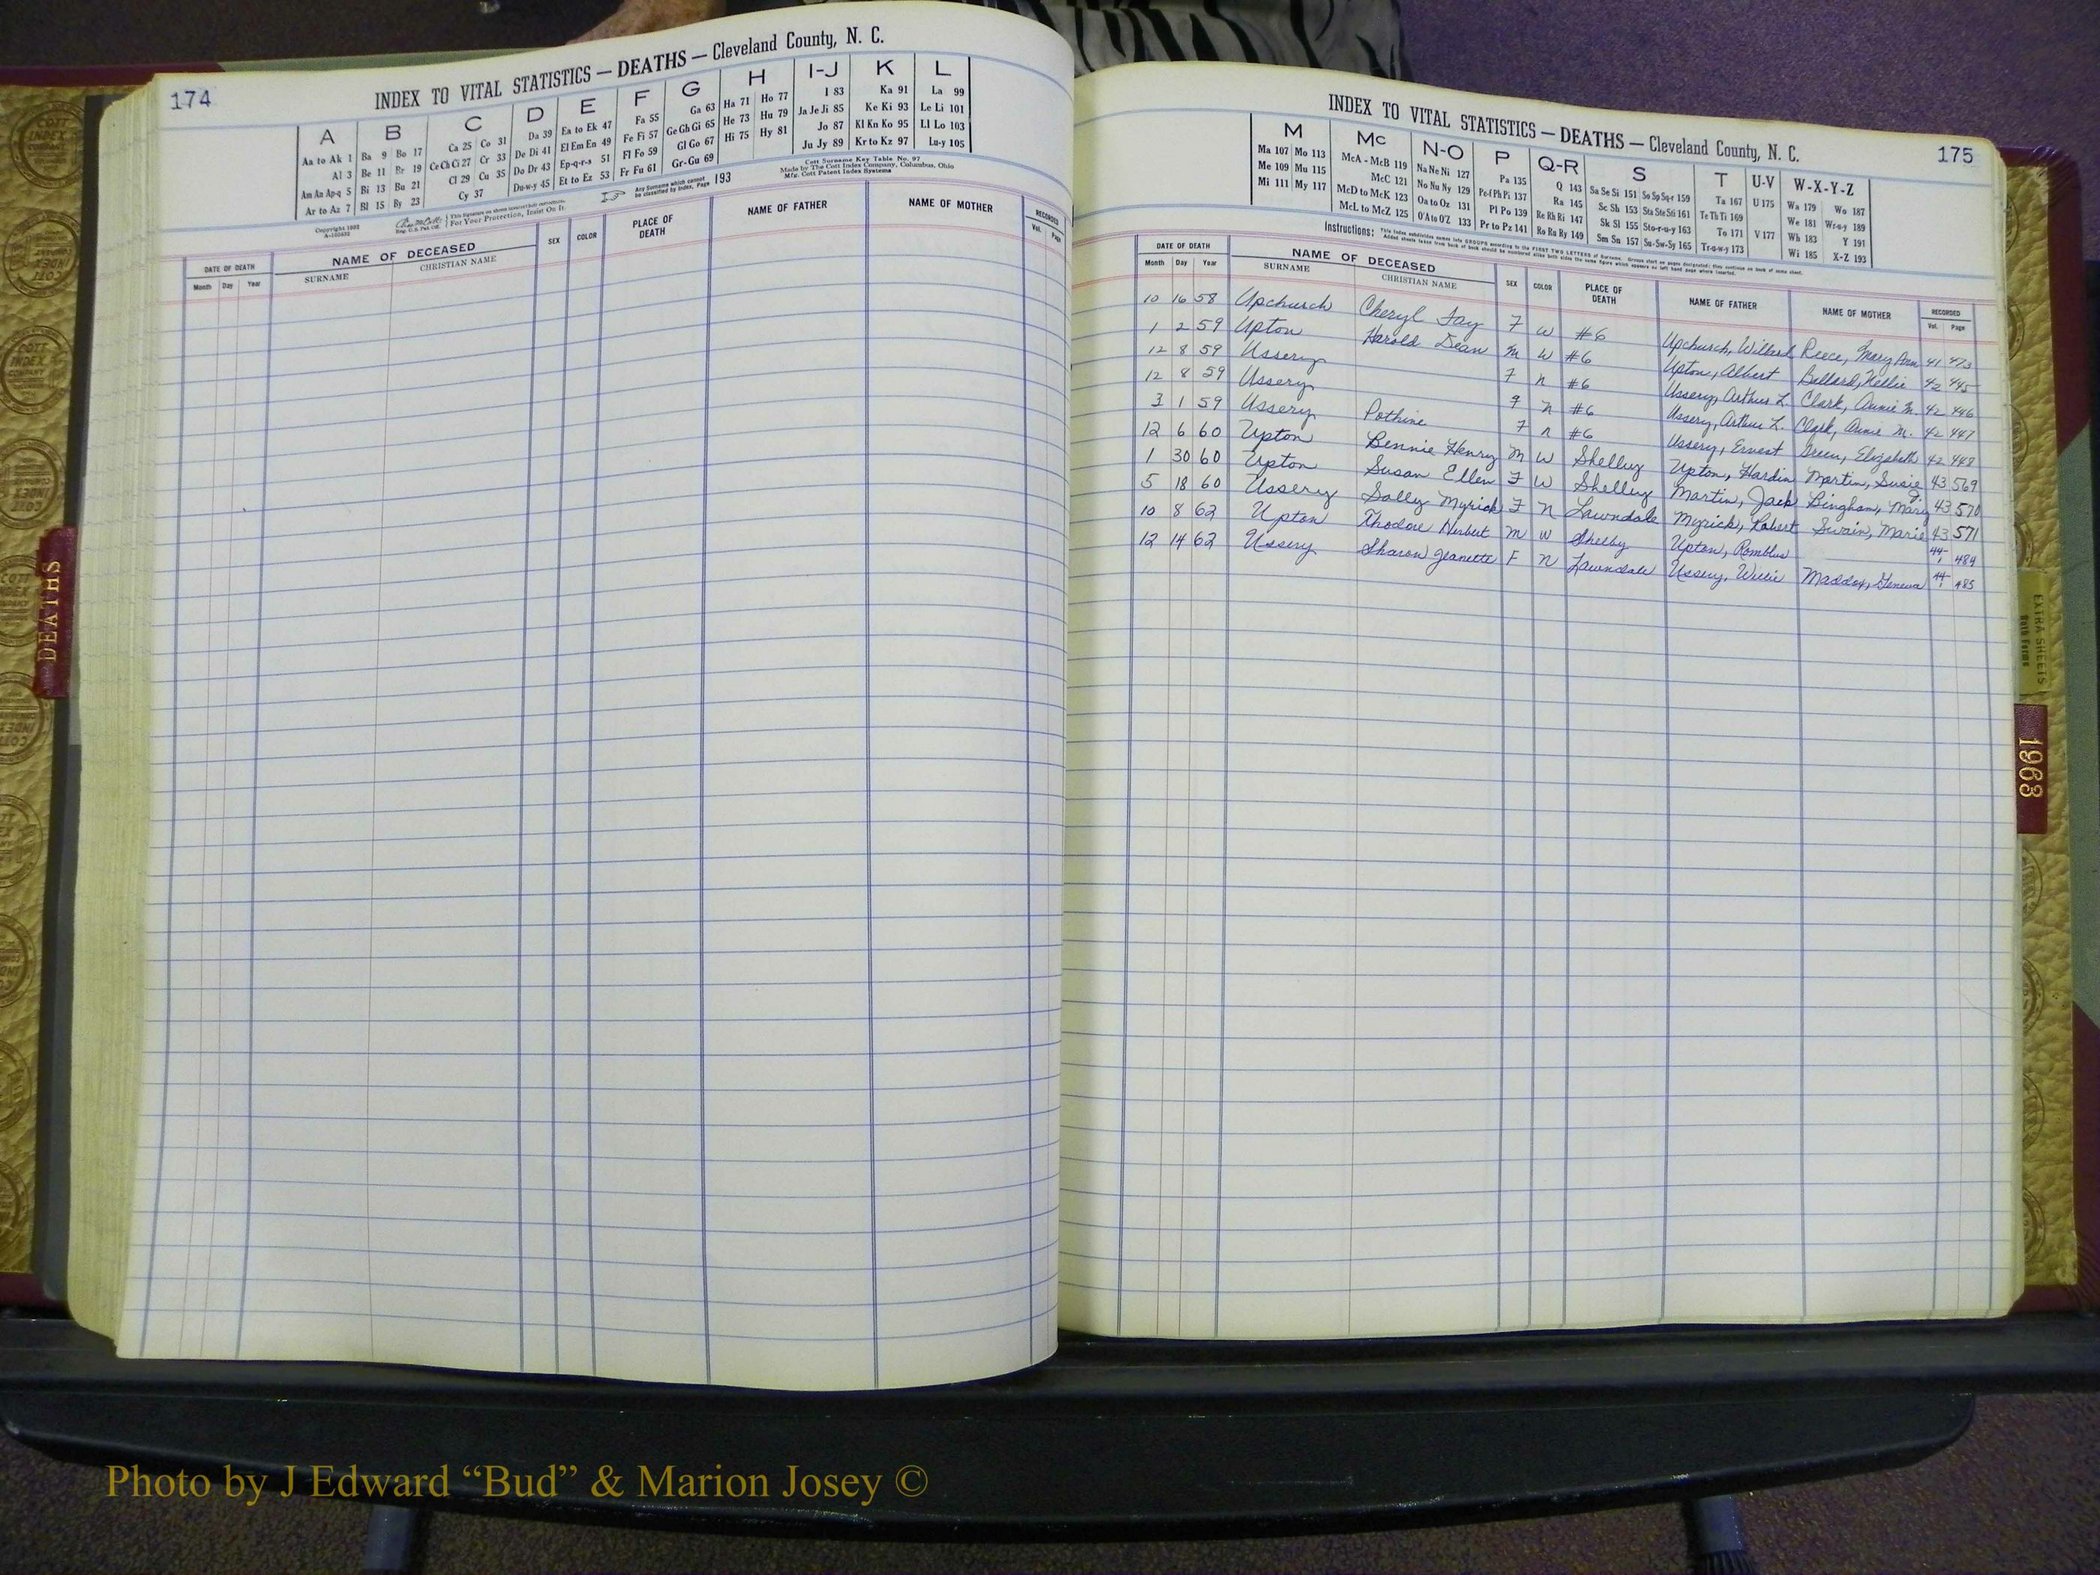 174
INDEX TO VITAL STATISTICS — DEATHS — Cleveland County, N. C.
A B C D E F G H I-J K L
Aa to Ak 1 Ba 9 Bo 17 Ca 25 Co 31 Da 39 Ea to Ek 47 Fa 55 Ga 63 Ha 71 Ho 77 I 83 Ka 91 La 99
Al 3 Be 11 Br 19 Ce Ch Ci 27 Cr 33 De Di 41 El Em En 49 Fe Fi 57 Ge Gh Gi 65 He 73 Hu 79 Ja Je Ji 85 Ke Ki 93 Le Li 101
Am An Ap-q 5 Bi 13 Bu 21 Cl 29 Cu 35 Do Dr 43 Ep-q-r-s 51 Fl Fo 59 Gl Go 67 Hi 75 Hy 81 Jo 87 Kl Kn Ko 95 Ll Lo 103
Ar to Az 7 Bl 15 By 23 Cy 37 Du-w-y 45 Et to Ez 53 Fr Fu 61 Gr-Gu 69 Ju Jy 89 Kr to Kz 97 Lu-y 105
Any Surname which cannot be classified by index, Page 193
Cott Surname Key Table No. 97
Made by The Cott Index Company, Columbus, Ohio
Mfg. Cott Patent Index Systems
For Your Protection, Insist On It.
DATE OF DEATH NAME OF DECEASED SEX COLOR PLACE OF DEATH NAME OF FATHER NAME OF MOTHER RECORDED
Month Day Year SURNAME CHRISTIAN NAME Vol. Page
INDEX TO VITAL STATISTICS — DEATHS — Cleveland County, N. C.
175
M Mc N-O P Q-R S T U-V W-X-Y-Z
Ma 107 Mo 113 McA - McB 119 Na Ne Ni 127 Pa 135 Q 143 Sa Se Si 151 So Sp Sq-r 159 Ta 167 U 175 Wa 179 Wo 187
Me 109 Mu 115 McC 121 No Nu Ny 129 Pe-f Ph Pi 137 Ra 145 Sc Sh 153 Sta Ste Sti 161 Te Th Ti 169 We 181 Wr-u-y 189
Mi 111 My 117 McD to McK 123 Oa to Oz 131 Pl Po 139 Re Rh Ri 147 Sk Sl 155 Sto-r-u-y 163 To 171 V 177 Wh 183 Y 191
McL to McZ 125 O'A to O'Z 133 Pr to Pz 141 Ro Ru Ry 149 Sm Sn 157 Su-Sw-Sy 165 Tr-u-w-y 173 Wi 185 X-Z 193
Instructions:
DATE OF DEATH NAME OF DECEASED SEX COLOR PLACE OF DEATH NAME OF FATHER NAME OF MOTHER RECORDED
Month Day Year SURNAME CHRISTIAN NAME Vol. Page
10 16 58 Upchurch Cheryl Fay F W #6 Upchurch, Reece, Mary Ann 41 473
1 2 59 Upton Harold Dean M W #6 Upton, Albert Ballard, Nellie 42 445
12 8 59 Ussery F n #6 Ussery, Arthur L. Clark, Annie M. 42 446
12 8 59 Ussery F n #6 Ussery, Arthur L. Clark, Annie M. 42 447
3 1 59 Ussery F n #6 Ussery, Ernest Green, Elizabeth 42 448
12 6 60 Upton Bennie Henry M W Shelby Upton, Hardin Martin, Susie 43 569
1 30 60 Upton Susan Ellen F W Shelby Martin, Jack Bingham, Mary 43 570
5 18 60 Ussery Sally Myrick F N Lawndale Myrick, Robert Swain, Marie 43 571
10 8 62 Upton Thodore Herbert M W Shelby Upton, Romblus 44 484
12 14 62 Ussery Sharon Jeanette F N Lawndale Ussery, Willie Maddox, Geneva 44 485
DEATHS
EXTRA SHEETS
Both Forms
1963
Photo by J Edward “Bud” & Marion Josey ©